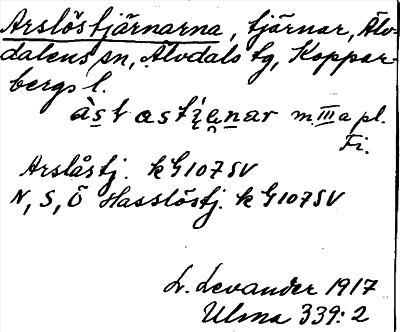 Arslöstjärnarna, tjärnar, Älv-
dalens sn, Älvdals tg, Koppar-
bergs l.
m. III a pl.
Fi.
Arslåstj. k G107SV
N, S, Ö Hasslöstj. k G107SV
L. Levander 1917
Ulma 339:2